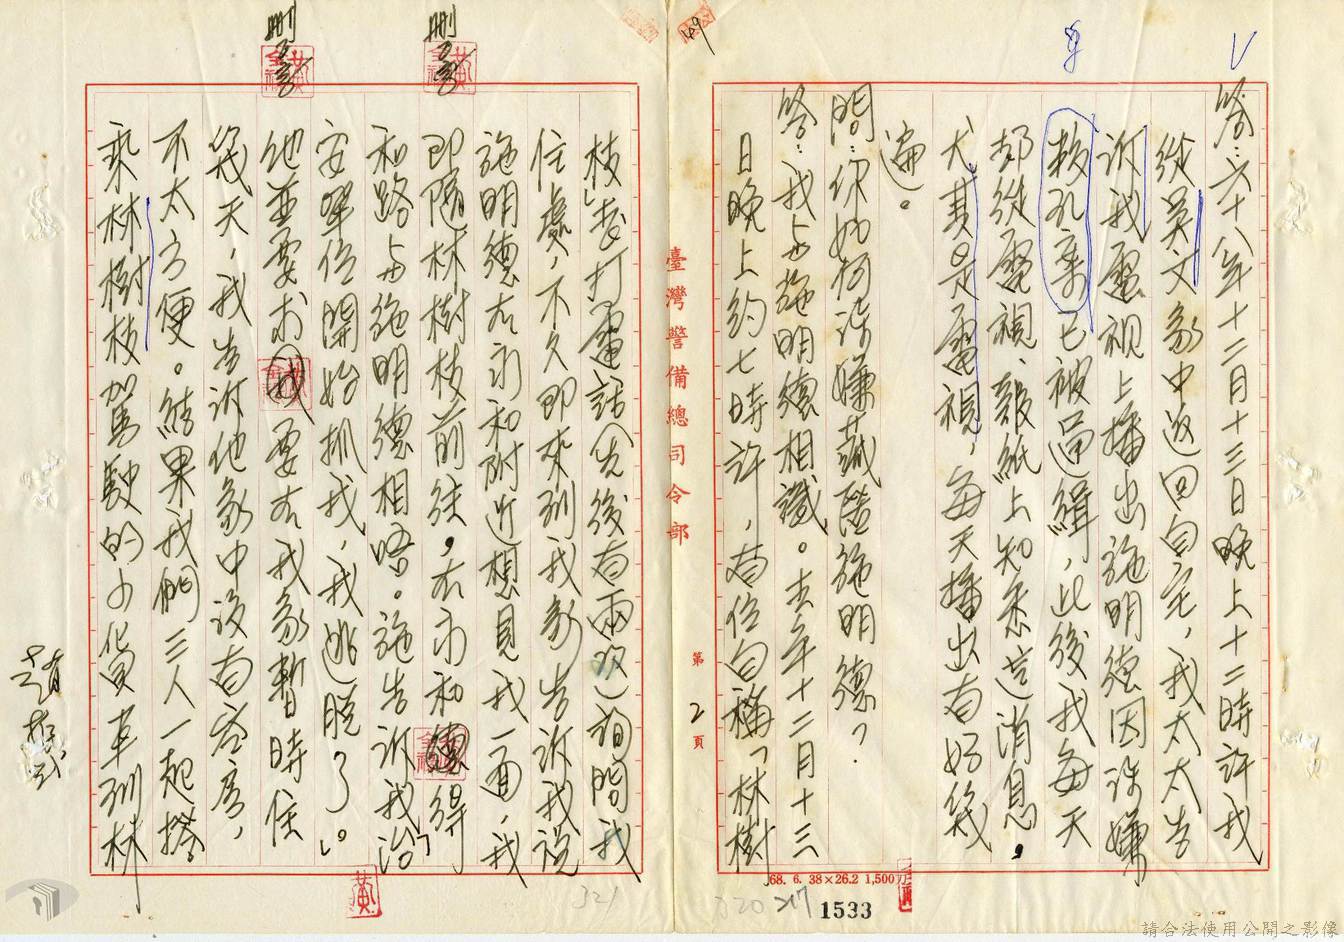 答：六十八年十二月十三日晚上十二時許我
從吳文家中返回自宅，我太太告
訴我電視上播出施明德因涉嫌
叛乱案已被通緝，此後我每天
都從電視、報紙上知悉這消息，
尤其是電視，每天播出有好幾
遍。
問：你如何涉嫌藏匿施明德？
答：我与施明德相識。去年十二月十三
日晚上約七時許，有位自稱「林樹
枝」者打電話（先後有兩次）詢問我
住處，不久即來到我家告訴我說
施明德在永和附近想見我一面，我
即隨林樹枝前往，在永和 得
和路与施明德相晤。施告訴我「治
安單位開始抓我，我逃脫了」。
他並要求我要在我家暫時住
幾天，我告訴他家中設有客房，
不太方便。結果我們三人一起搭
乘林樹枝駕駛的小貨車到林
臺灣警備總司令部
第2頁
68. 6. 38×26.2 1,500
1533
320
217
321
169
刪
刪
黃
請合法使用公開之影像